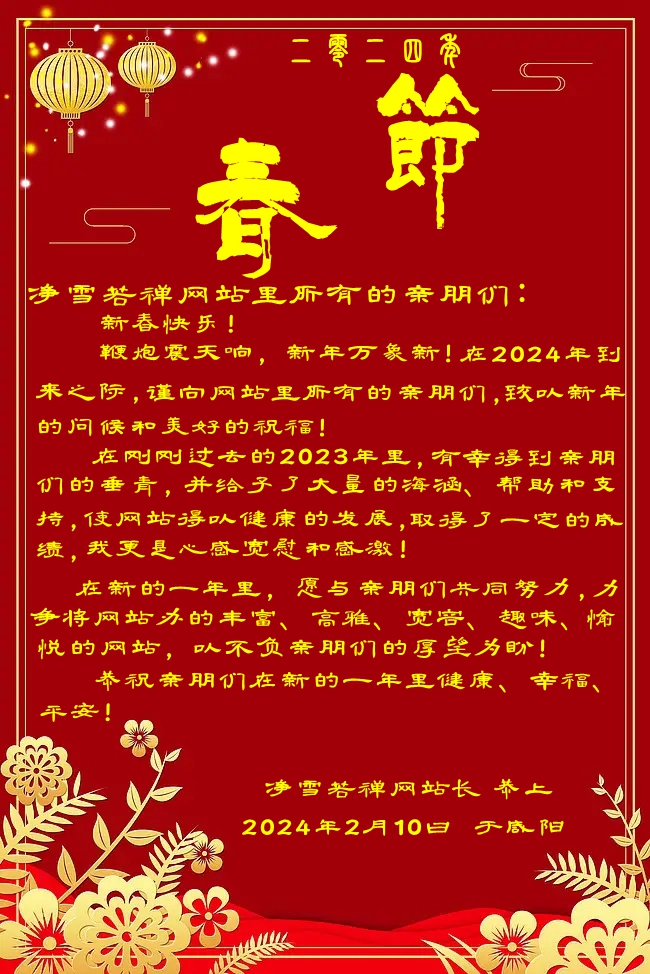 二零二四年
春節
净雪若禅网站里所有的亲朋们：
新春快乐！
鞭炮震天响，新年万象新！在2024年到
来之际，谨向网站里所有的亲朋们，致以新年
的问候和美好的祝福！
在刚刚过去的2023年里，有幸得到亲朋
们的垂青，并给予了大量的海涵、帮助和支
持，使网站得以健康的发展，取得了一定的成
绩，我更是心感宽慰和感激！
在新的一年里，愿与亲朋们共同努力，力
争将网站办的丰富、高雅、宽容、趣味、愉
悦的网站，以不负亲朋们的厚望为盼！
恭祝亲朋们在新的一年里健康、幸福、
平安！
净雪若禅网站长 恭上
2024年2月10日 于咸阳